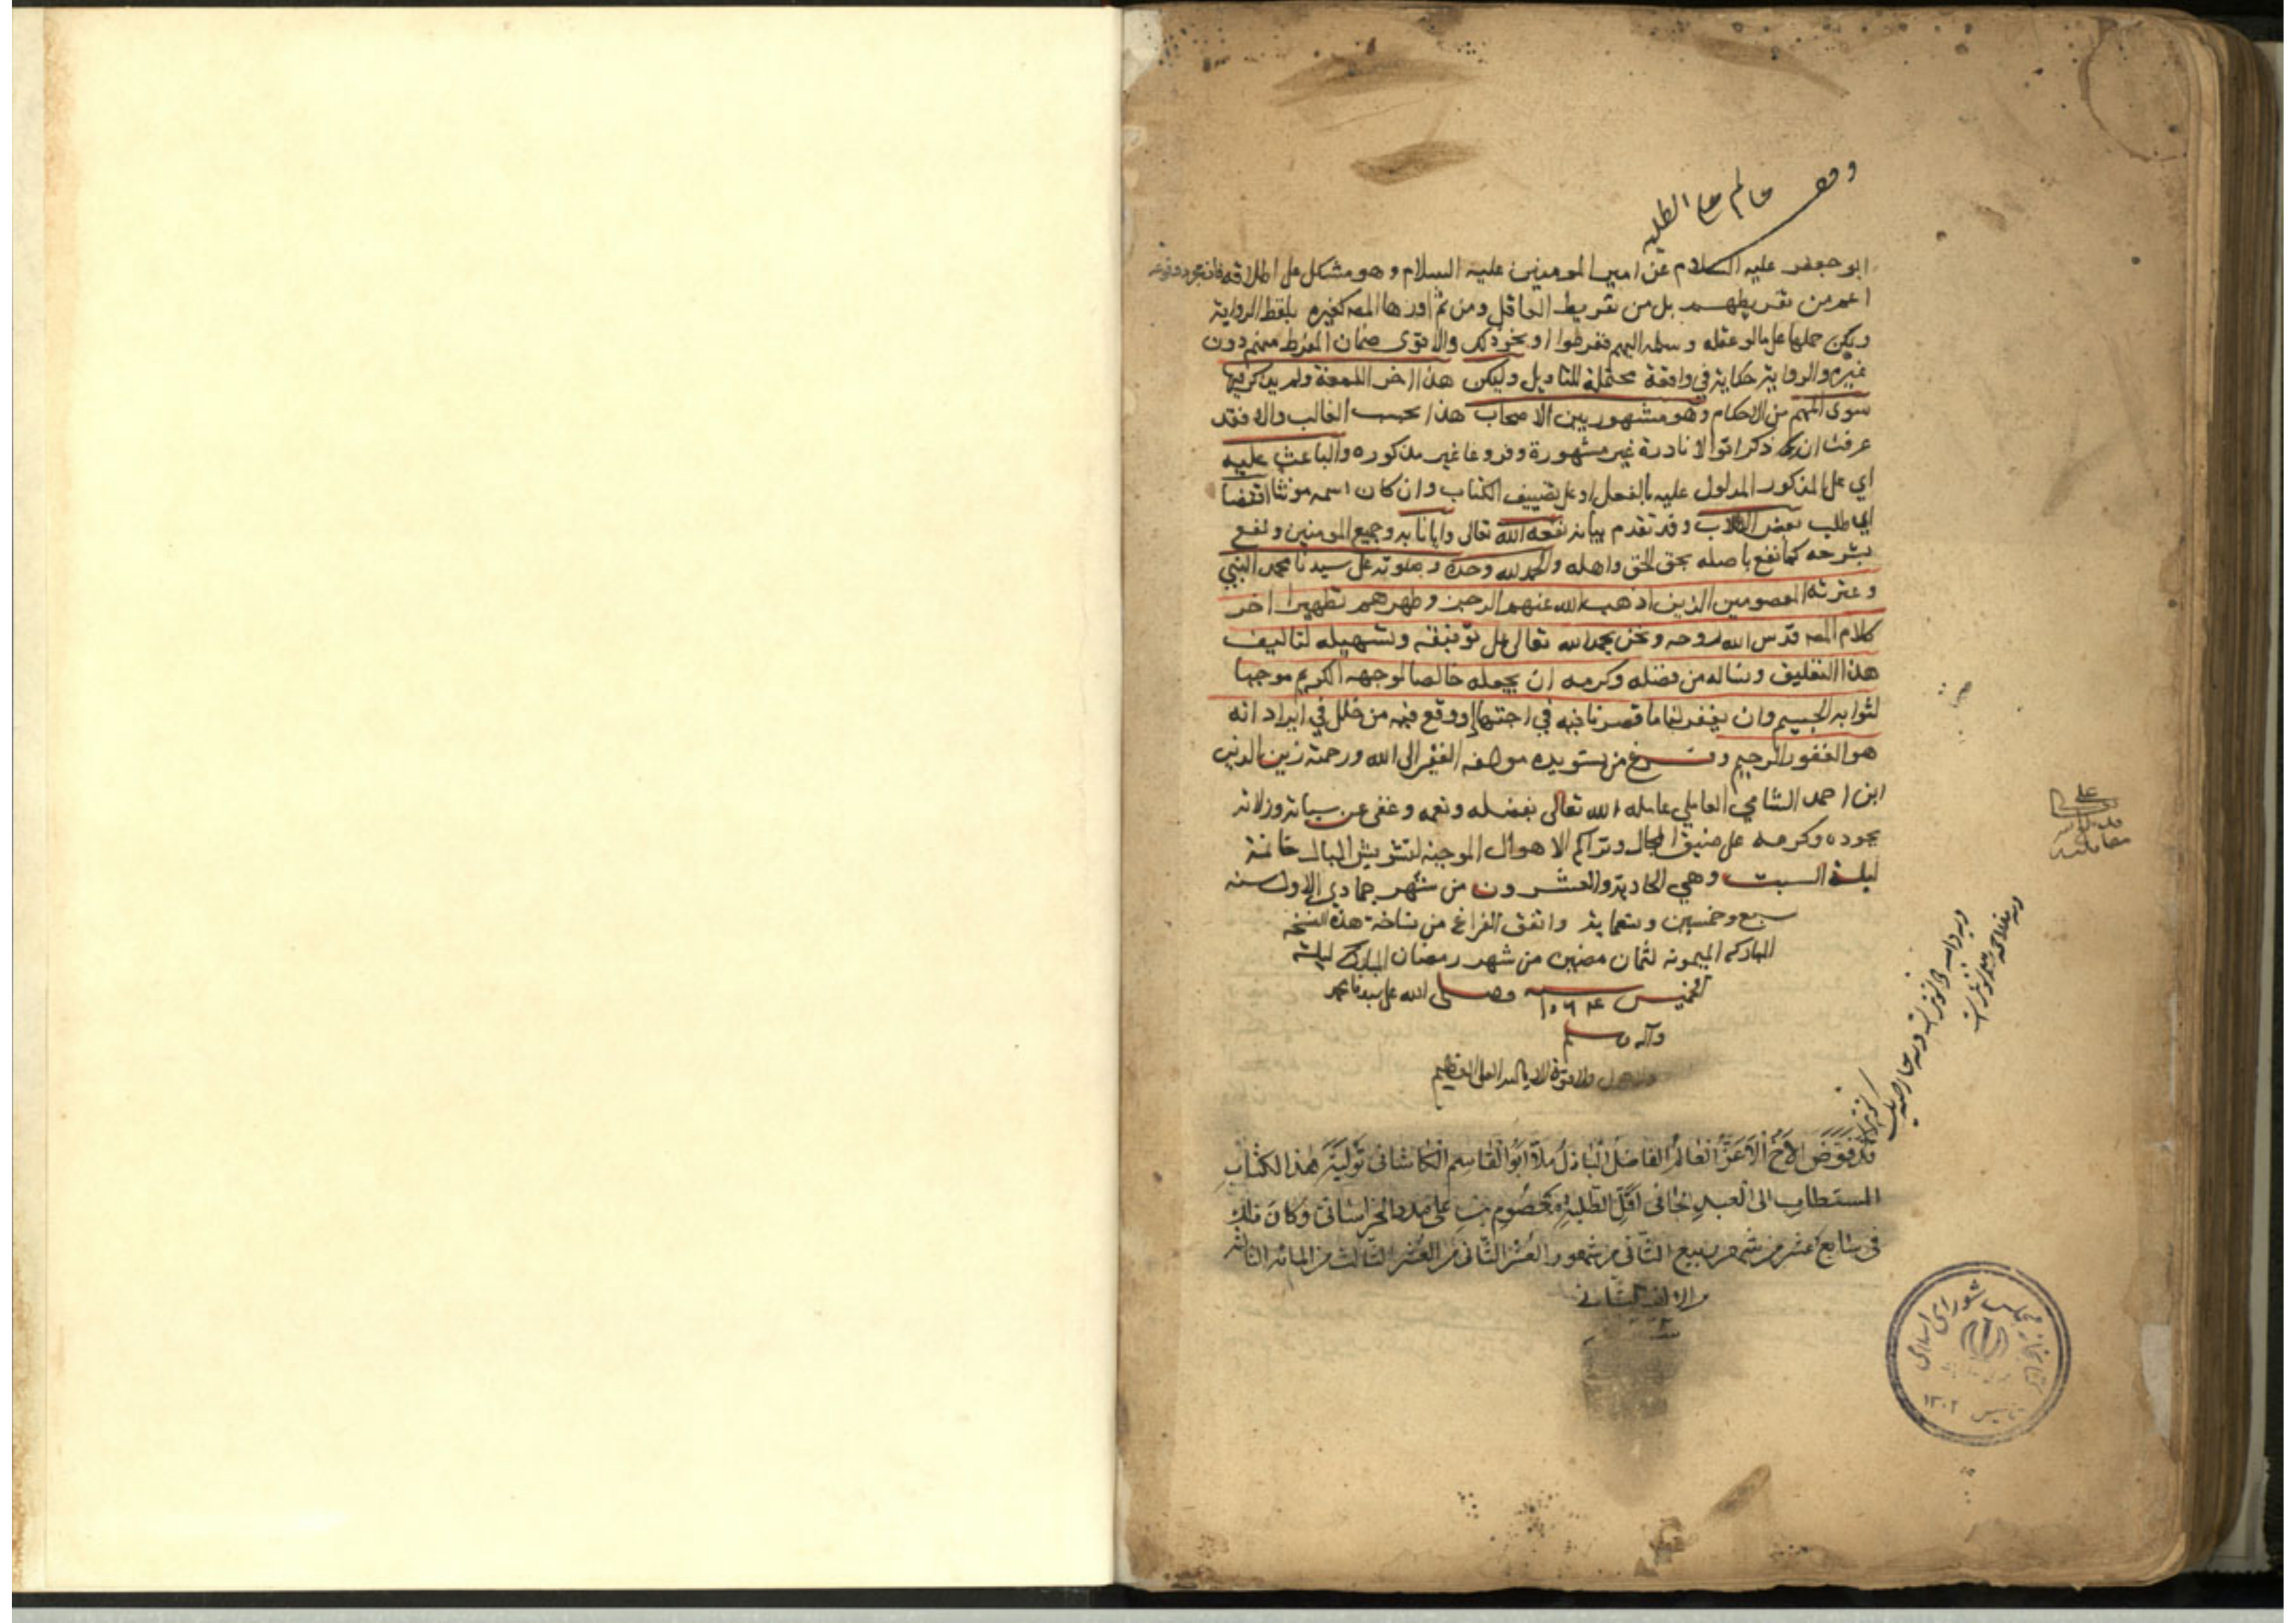 وقف
عالم على الطلبه
ابو جعفر عليه السلام عن امير المومنين عليه السلام و هو مشكل على اطلاقه فان مجرد وقوعه
اعم من تفريطهم بل من تفريط العاقل ومن ثم اوردها المصـ كغيره بلفظ الرواية
ويمكن حملها على ما لو عقله و سلمه اليهم ففرطوا او نحو ذلك والاقوى ضمان المفرط منهم دون
غيره والرواية حكاية في واقعة محتملة للتاويل وليكن هذا اخر اللمعة ولم يذكر فيها
سوى المهم من الاحكام وهو مشهور بين الاصحاب هذا بحسب الغالب والا فقد
عرفت انه ذكر اقوالا نادرة غير مشهورة وفروعا غير مذكوره والباعث عليه
اي على المذكور المدلول عليه بالفعل او على تصنيف الكتاب وان كان اسمه مونثا اقتضا
اي طلب بعض الطلاب و قد تقدم بيانه نفعه الله تعالى وايانا به وجميع المومنين و نفع
بشرحه كما نفع باصله بحق الحق واهله والحمد لله وحده و صلوته على سيدنا محمد النبي
و عترته المعصومين الذين اذهب الله عنهم الرجس و طهرهم تطهيرا اخر
كلام المصـ قدس الله روحه ونحن نحمد الله تعالى على توفيقه وتسهيله لتاليف
هذا التعليق ونساله من فضله وكرمه ان يجعله خالصا لوجهه الكريم موجبا
لثوابه الجسيم وان يغفر لنا ما قصرنا فيه في اجتهاد ووقع فيه من خلل في ايراد انه
هو الغفور الرحيم و فرغ من تسويده مولفه الفقير الى الله ورحمته زين الدين
ابن احمد الشامي العاملي عامله الله تعالى بفضله ونعمه وعفى عن سيئاته وزلاته
بجوده وكرمه على ضيق المجال وتراكم الاهوال الموجبة لتشويش البال خاتمة
ليلة السبت وهي الحادية والعشرون من شهر جمادي الاول سنه
سبع وخمسين وتسعماية واتفق الفراغ من نساخة هذه النسخه
المباركه الميمونه لثمان مضين من شهر رمضان المبارك ليلة
الخميس سنه ١٠٦٤ وصلى الله على سيدنا محمد
وآله وسلم
ولا حول ولا قوة الا بالله العلي العظيم
قد فوض الاخ الاعز العالم الفاضل الباذل ملا ابو القاسم الكاشانى تولية هذا الكتاب
المستطاب الى العبد الجانى اقل الطلبة معصوم بن على مدد الخراسانى وكان ذلك
فى سابع عشر من شهر ربيع الثانى من شهور العشر الثانى من العشر الثالث من المائه الثالثه
من الالف الثانى
كتابخانه مجلس شوراى اسلامى
تاسيس ١٣٠٢